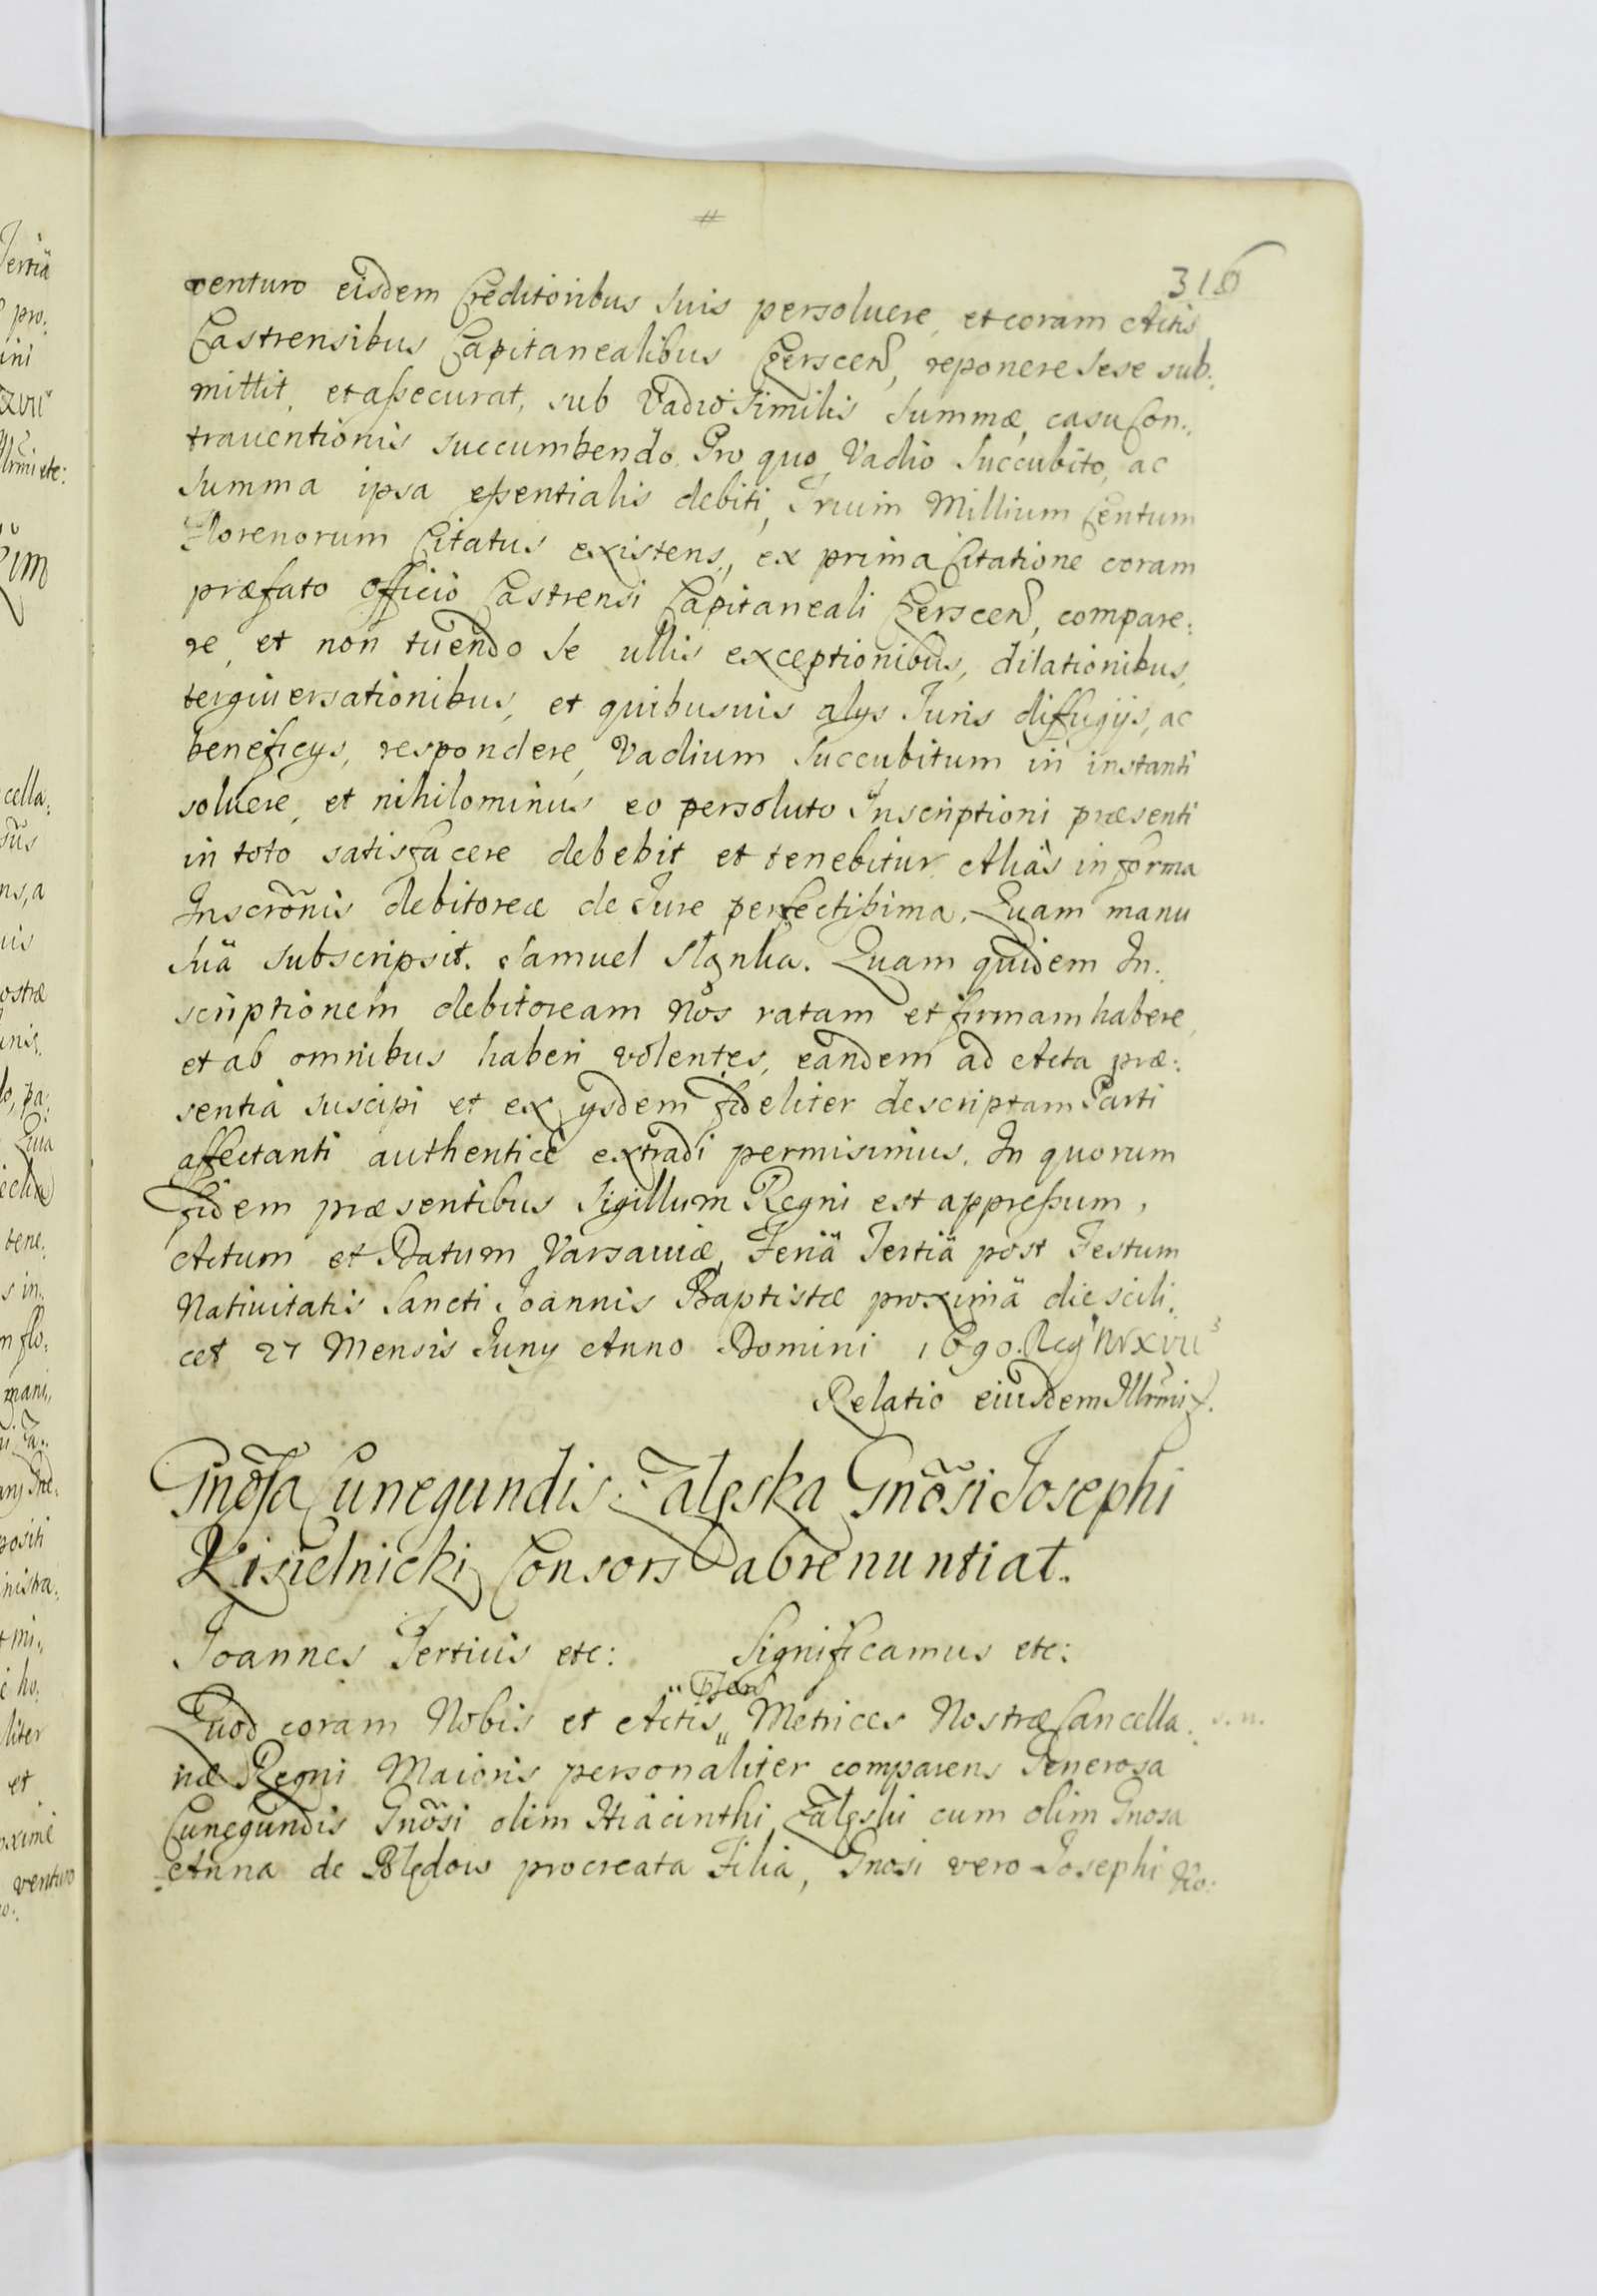 316
venturo eisdem Creditoribus suis persoluere, et coram Actis
Castrensibus Capitanealibus Czerscen, reponere sese sub:
mittit, et assecurat, sub Vadio similis summæ, casu Con:
trauentionis succumbendo. Pro quo Vadio succubito, ac
summa ipsa essentialis debiti, Trium Millium Centum
Florenorum Citatus existens, ex prima Citatione coram
præfato Officio Castrensi Capitaneali Czerscen, compare:
re, et non tuendo se ullis exceptionibus, dilationibus,
tergiuersationibus, et quibusuis alys Juris diffugijs, ac
beneficys, respondere, Vadium succubitum in instanti
soluere, et nihilominus eo persoluto Inscriptioni præsenti
in toto satisfacere debebit et tenebitur Aliàs in forma
Inscrõnis debitoreæ de Jure perfectissima. Quam manu
suä subscripsit. Samuel Slanka. Quam quidem In:
scriptionem debitoream Nos ratam et firmam habere,
et ab omnibus haberi volentes, eandem ad Acta præ:
sentia suscipi et ex ysdem fideliter descriptam Parti
affectanti authenticè extradi permisimus. In quorum
fidem præsentibus Sigillum Regni est appressum,
Actum et Datum Varsauiæ, Feriä Tertiä post Festum
Natiuitatis Sancti Joannis Baptistæ proximä die scili:
cet 27 Mensis Juny Anno Domini 1690. Reg Nr xvii
Relatio eiusdem Illrmi
Gnõsa Cunegundis Zaleska Gnõsi Josephi
Kisielnicki Consors abrenuntiat.
Joannes Tertius etc: Significamus etc:
Quod coram Nobis et Actis Metrices Nostræ Cancella:
riæ Regni Maioris personaliter comparens Generosa
Cunegundis Gnõsi olim Hiacinthi Zaleski cum olim Gnosa
Anna de Bledow procreata Filia, Gnosi vero Josephi